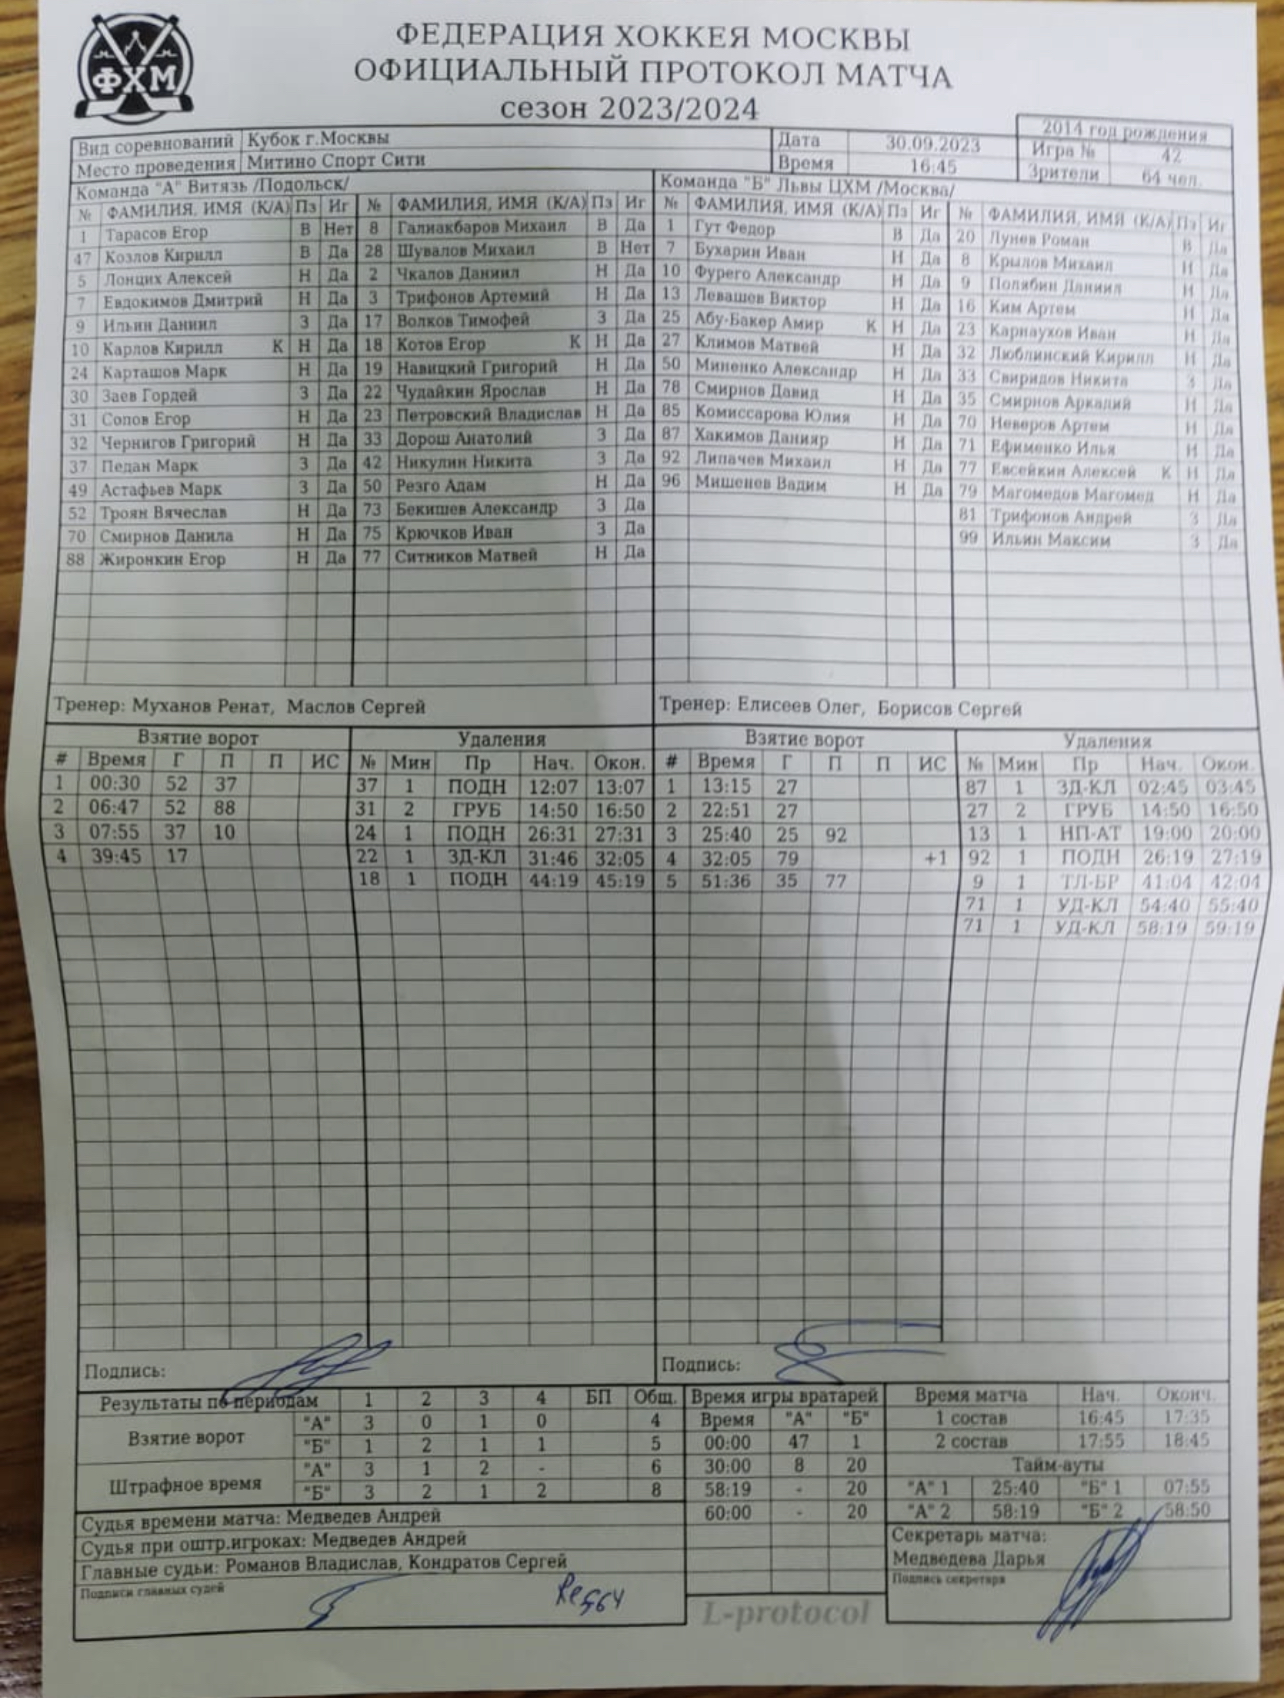 ФХМ
ФЕДЕРАЦИЯ ХОККЕЯ МОСКВЫ
ОФИЦИАЛЬНЫЙ ПРОТОКОЛ МАТЧА
сезон 2023/2024
2014 год рождения
Вид соревнований Кубок г.Москвы Дата 30.09.2023 Игра № 42
Место проведения Митино Спорт Сити Время 16:45 Зрители 64 чел.
Команда "А" Витязь /Подольск/ Команда "Б" Львы ЦХМ /Москва/
№ ФАМИЛИЯ, ИМЯ (К/А) Пз Иг № ФАМИЛИЯ, ИМЯ (К/А) Пз Иг № ФАМИЛИЯ, ИМЯ (К/А) Пз Иг № ФАМИЛИЯ, ИМЯ (К/А) Пз Иг
1 Тарасов Егор В Нет 8 Галиакбаров Михаил В Да 1 Гут Федор В Да 20 Лунев Роман В Да
47 Козлов Кирилл В Да 28 Шувалов Михаил В Нет 7 Бухарин Иван Н Да 8 Крылов Михаил Н Да
5 Лонцих Алексей Н Да 2 Чкалов Даниил Н Да 10 Фурего Александр Н Да 9 Полябин Даниил Н Да
7 Евдокимов Дмитрий Н Да 3 Трифонов Артемий Н Да 13 Левашев Виктор Н Да 16 Ким Артем Н Да
9 Ильин Даниил З Да 17 Волков Тимофей З Да 25 Абу-Бакер Амир К Н Да 23 Карнаухов Иван Н Да
10 Карлов Кирилл К Н Да 18 Котов Егор К Н Да 27 Климов Матвей Н Да 32 Люблинский Кирилл Н Да
24 Карташов Марк Н Да 19 Навицкий Григорий Н Да 50 Миненко Александр Н Да 33 Свиридов Никита З Да
30 Заев Гордей З Да 22 Чудайкин Ярослав Н Да 78 Смирнов Давид Н Да 35 Смирнов Аркадий Н Да
31 Сопов Егор Н Да 23 Петровский Владислав Н Да 85 Комиссарова Юлия Н Да 70 Неверов Артем Н Да
32 Чернигов Григорий Н Да 33 Дорош Анатолий З Да 87 Хакимов Данияр Н Да 71 Ефименко Илья Н Да
37 Педан Марк З Да 42 Никулин Никита З Да 92 Липачев Михаил Н Да 77 Евсейкин Алексей К Н Да
49 Астафьев Марк З Да 50 Резго Адам Н Да 96 Мишенев Вадим Н Да 79 Магомедов Магомед Н Да
52 Троян Вячеслав Н Да 73 Бекишев Александр З Да 81 Трифонов Андрей З Да
70 Смирнов Данила Н Да 75 Крючков Иван З Да 99 Ильин Максим З Да
88 Жиронкин Егор Н Да 77 Ситников Матвей Н Да
Тренер: Муханов Ренат, Маслов Сергей Тренер: Елисеев Олег, Борисов Сергей
Взятие ворот Удаления Взятие ворот Удаления
# Время Г П П ИС № Мин Пр Нач. Окон. # Время Г П П ИС № Мин Пр Нач. Окон.
1 00:30 52 37 37 1 ПОДН 12:07 13:07 1 13:15 27 87 1 ЗД-КЛ 02:45 03:45
2 06:47 52 88 31 2 ГРУБ 14:50 16:50 2 22:51 27 27 2 ГРУБ 14:50 16:50
3 07:55 37 10 24 1 ПОДН 26:31 27:31 3 25:40 25 92 13 1 НП-АТ 19:00 20:00
4 39:45 17 22 1 ЗД-КЛ 31:46 32:05 4 32:05 79 +1 92 1 ПОДН 26:19 27:19
18 1 ПОДН 44:19 45:19 5 51:36 35 77 9 1 ТЛ-БР 41:04 42:04
71 1 УД-КЛ 54:40 55:40
71 1 УД-КЛ 58:19 59:19
Подпись: Подпись:
Результаты по периодам 1 2 3 4 БП Общ. Время игры вратарей Время матча Нач. Оконч.
Взятие ворот "А" 3 0 1 0 4 Время "А" "Б" 1 состав 16:45 17:35
"Б" 1 2 1 1 5 00:00 47 1 2 состав 17:55 18:45
Штрафное время "А" 3 1 2 - 6 30:00 8 20 Тайм-ауты
"Б" 3 2 1 2 8 58:19 - 20 "А" 1 25:40 "Б" 1 07:55
60:00 - 20 "А" 2 58:19 "Б" 2 58:50
Судья времени матча: Медведев Андрей
Судья при оштр.игроках: Медведев Андрей
Главные судьи: Романов Владислав, Кондратов Сергей
Подписи главных судей
Секретарь матча:
Медведева Дарья
Подпись секретаря
L-protocol